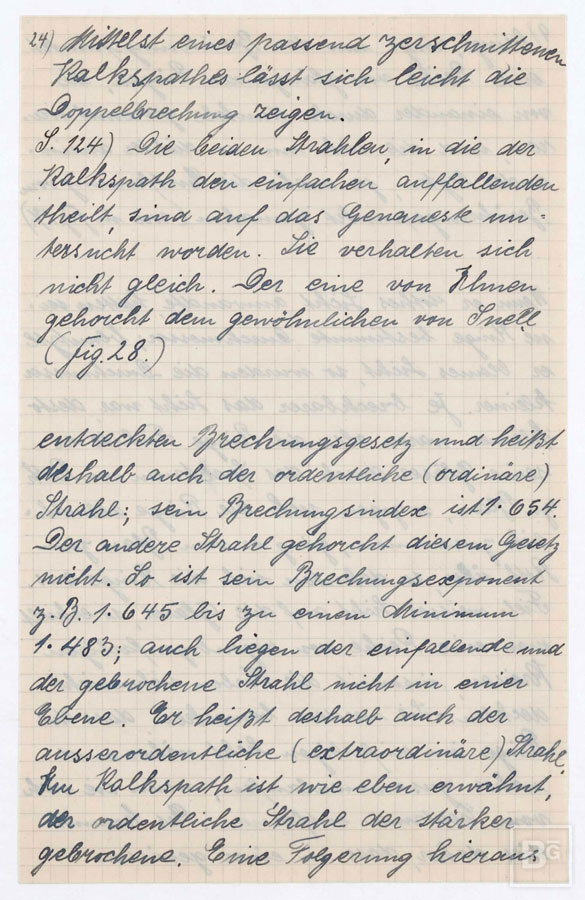 24) Mittelst eines passend zerschnittenen
Kalkspathes lässt sich leicht die
Doppelbrechung zeigen.
S. 124) Die beiden Strahlen, in die der
Kalkspath den einfachen, auffallenden
theilt, sind auf das Genaueste un-
tersucht worden. Sie verhalten sich
nicht gleich. Der eine von Ihnen
gehorcht dem gewöhnlichen von Snell
(fig. 28.)
entdeckten Brechungsgesetz und heißt
deshalb auch der ordentliche (ordinäre)
Strahl; sein Brechungsindex ist 1·654.
Der andere Strahl gehorcht diesem Gesetz
nicht. So ist sein Brechungsexponent
z. B. 1·645 bis zu einem Minimum
1·483; auch liegen der einfallende und
der gebrochene Strahl nicht in einer
Ebene. Er heißt deshalb auch der
ausserordentliche (extraordinäre) Strahl.
Im Kalkspath ist wie eben erwähnt,
der ordentliche Strahl der stärker
gebrochene. Eine Folgerung hieraus
BG